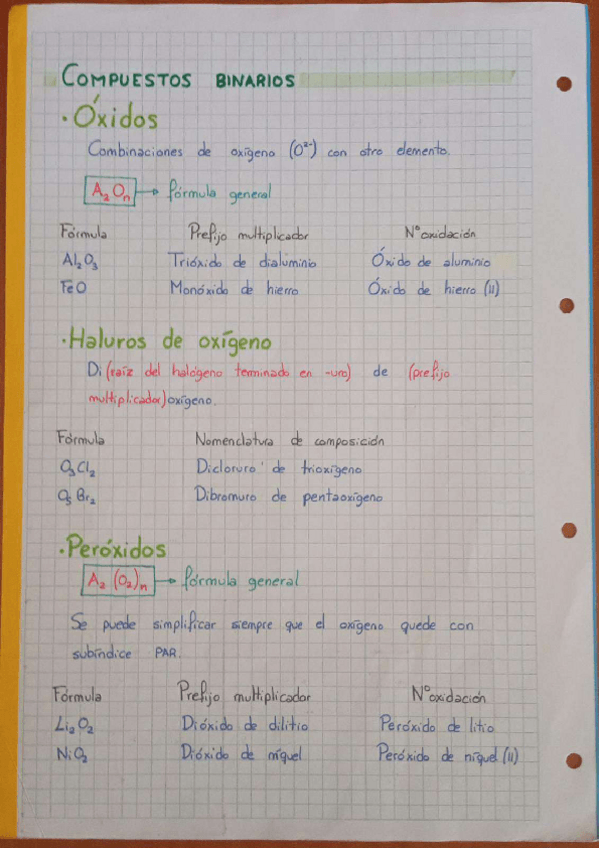 COMPUESTOS BINARIOS
· Óxidos
Combinaciones de oxígeno (O²⁻) con otro elemento.
A₂Oₙ → fórmula general
Fórmula Prefijo multiplicador Nº oxidación
Al₂O₃ Trióxido de dialuminio Óxido de aluminio
FeO Monóxido de hierro Óxido de hierro (II)
· Haluros de oxígeno
Di (raíz del halógeno terminado en -uro) de (prefijo
multiplicador) oxígeno.
Fórmula Nomenclatura de composición
O₃Cl₂ Dicloruro de trioxígeno
O₅Br₂ Dibromuro de pentaoxígeno
· Peróxidos
A₂(O₂)ₙ → fórmula general
Se puede simplificar siempre que el oxígeno quede con
subíndice PAR.
Fórmula Prefijo multiplicador Nº oxidación
Li₂O₂ Dióxido de dilitio Peróxido de litio
NiO₂ Dióxido de níquel Peróxido de níquel (II)